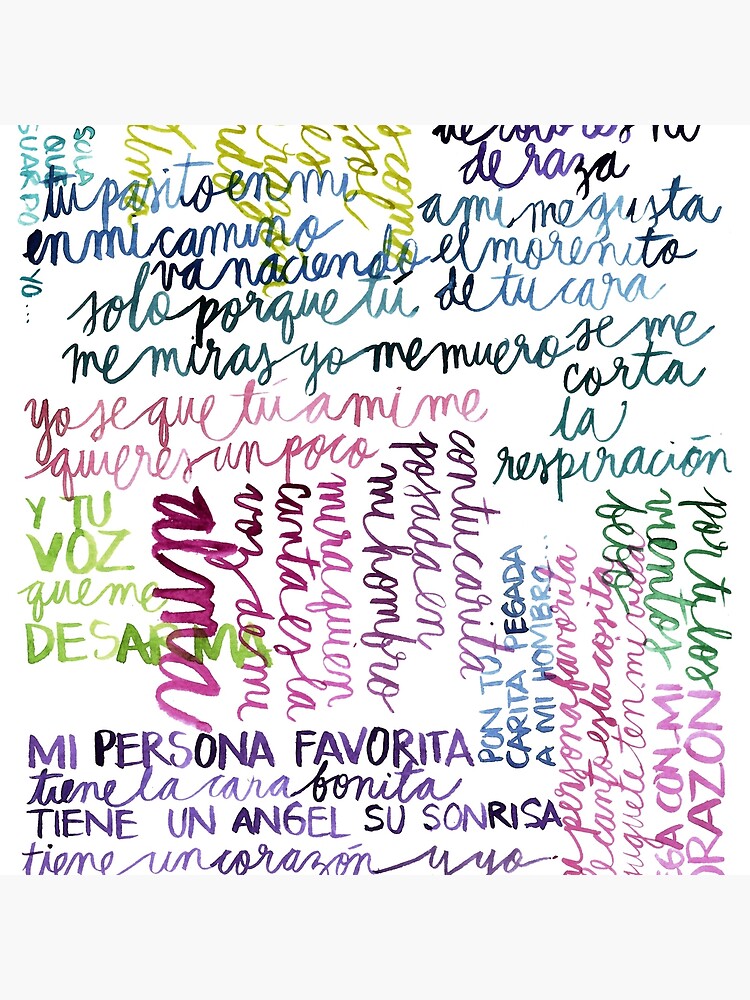 SOLA
QUE
GUARDO
YO...
de raza
tu pasito en mi
en mi camino
va naciendo
a mi me gusta
el morenito
de tu cara
solo porque tú
me miras yo me muero
se me
corta
la
respiración
yo se que tú a mi me
quieres un poco
Y TU
VOZ
que me
DESARMA
alma
voz de mi
canta es la
mira quien
mi hombro
posada en
con tu carita
PON TU
CARITA PEGADA
A MI HOMBRO...
persona favorita
esta cosita
juguete en mi vida
por ty los
mientos
CON MI
CORAZON
MI PERSONA FAVORITA
tiene la cara bonita
TIENE UN ANGEL SU SONRISA
tiene un corazón y yo